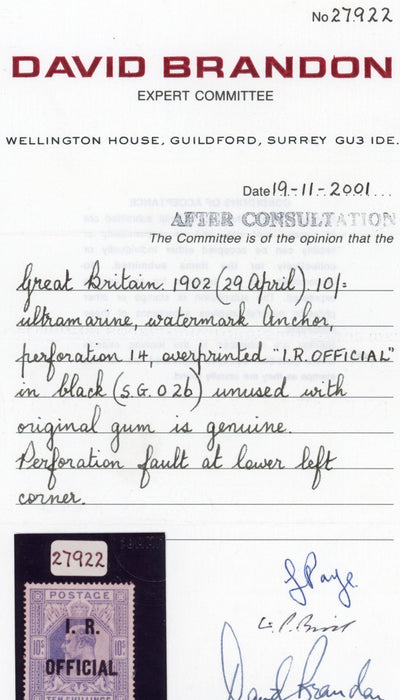 No 27922
DAVID BRANDON
EXPERT COMMITTEE
WELLINGTON HOUSE, GUILDFORD, SURREY GU3 1DE.
Date 19-11-2001...
AFTER CONSULTATION
The Committee is of the opinion that the
Great Britain. 1902 (29 April) 10/=
ultramarine, watermark Anchor,
perforation 14, overprinted "I.R. OFFICIAL"
in black (S.G. O26) unused with
original gum is genuine.
Perforation fault at lower left
corner.
27922
POSTAGE
I. R.
10S 10S
OFFICIAL
TEN SHILLINGS
David Brandon